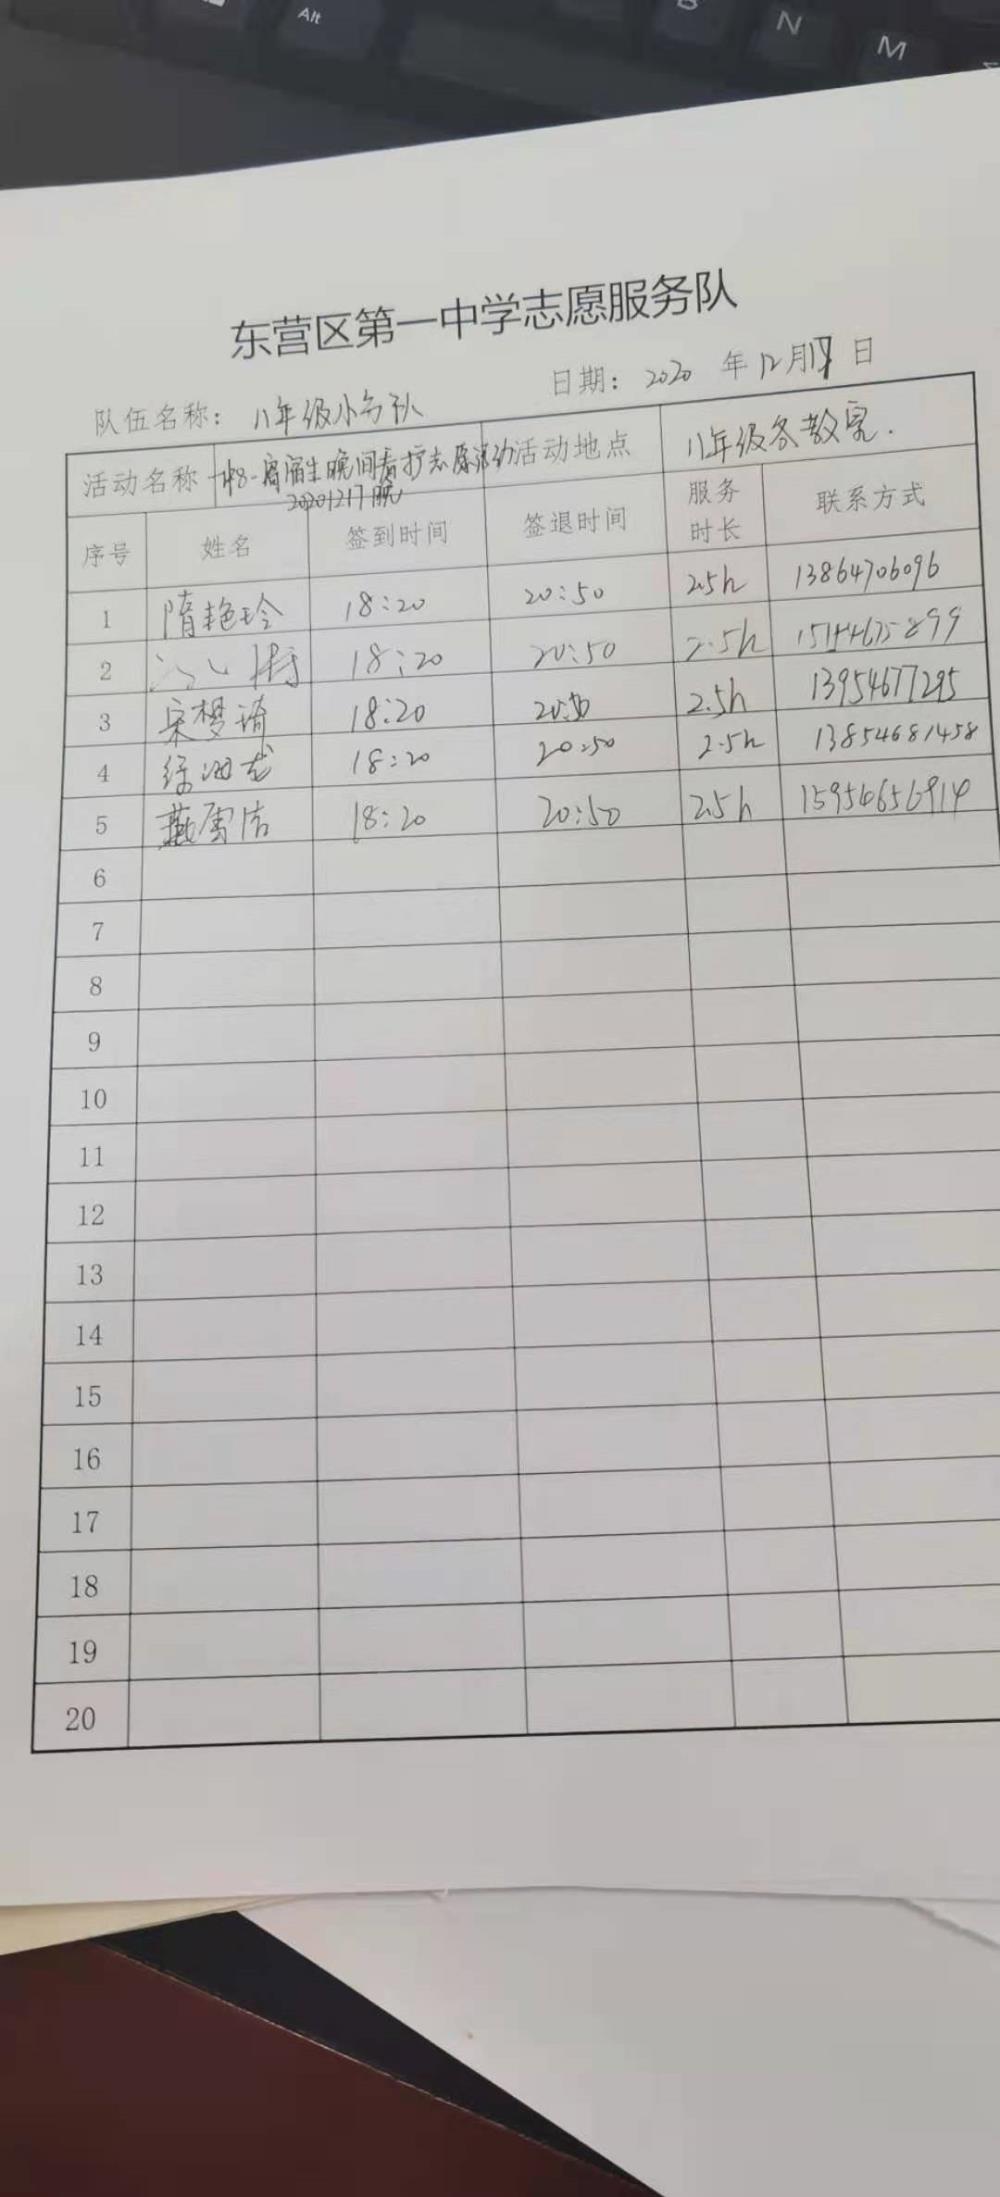 Alt
B
N
M
东营区第一中学志愿服务队
队伍名称：八年级小分队 日期：2020年12月17日
活动名称 寄宿生晚间看护志愿活动 活动地点 八年级各教室.
20201217晚
序号 姓名 签到时间 签退时间 服务时长 联系方式
1 隋艳玲 18:20 20:50 2.5h 13864706096
2 18:20 20:50 2.5h
3 宋梦琦 18:20 20:50 2.5h 13954677295
4 徐 18:20 20:50 2.5h 13854681458
5 燕雪洁 18:20 20:50 2.5h 15954656914
6
7
8
9
10
11
12
13
14
15
16
17
18
19
20